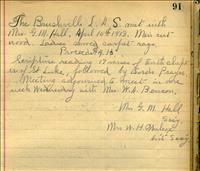 91
The Brushville L. A. S. met with
Mrs. G. M. Hall, April 10th 1913. Men cut
wood. Ladies sewed carpet rags.
Proceeds $9.15
Scripture reading 17 verses of Tenth chapter
of St Luke, followed by Lords Prayer.
Meeting adjourned to meet in one
week Wednesday with Mrs. W. A. Benson.
Mrs G. M. Hall
Secy.
Mrs W. H.
Secy